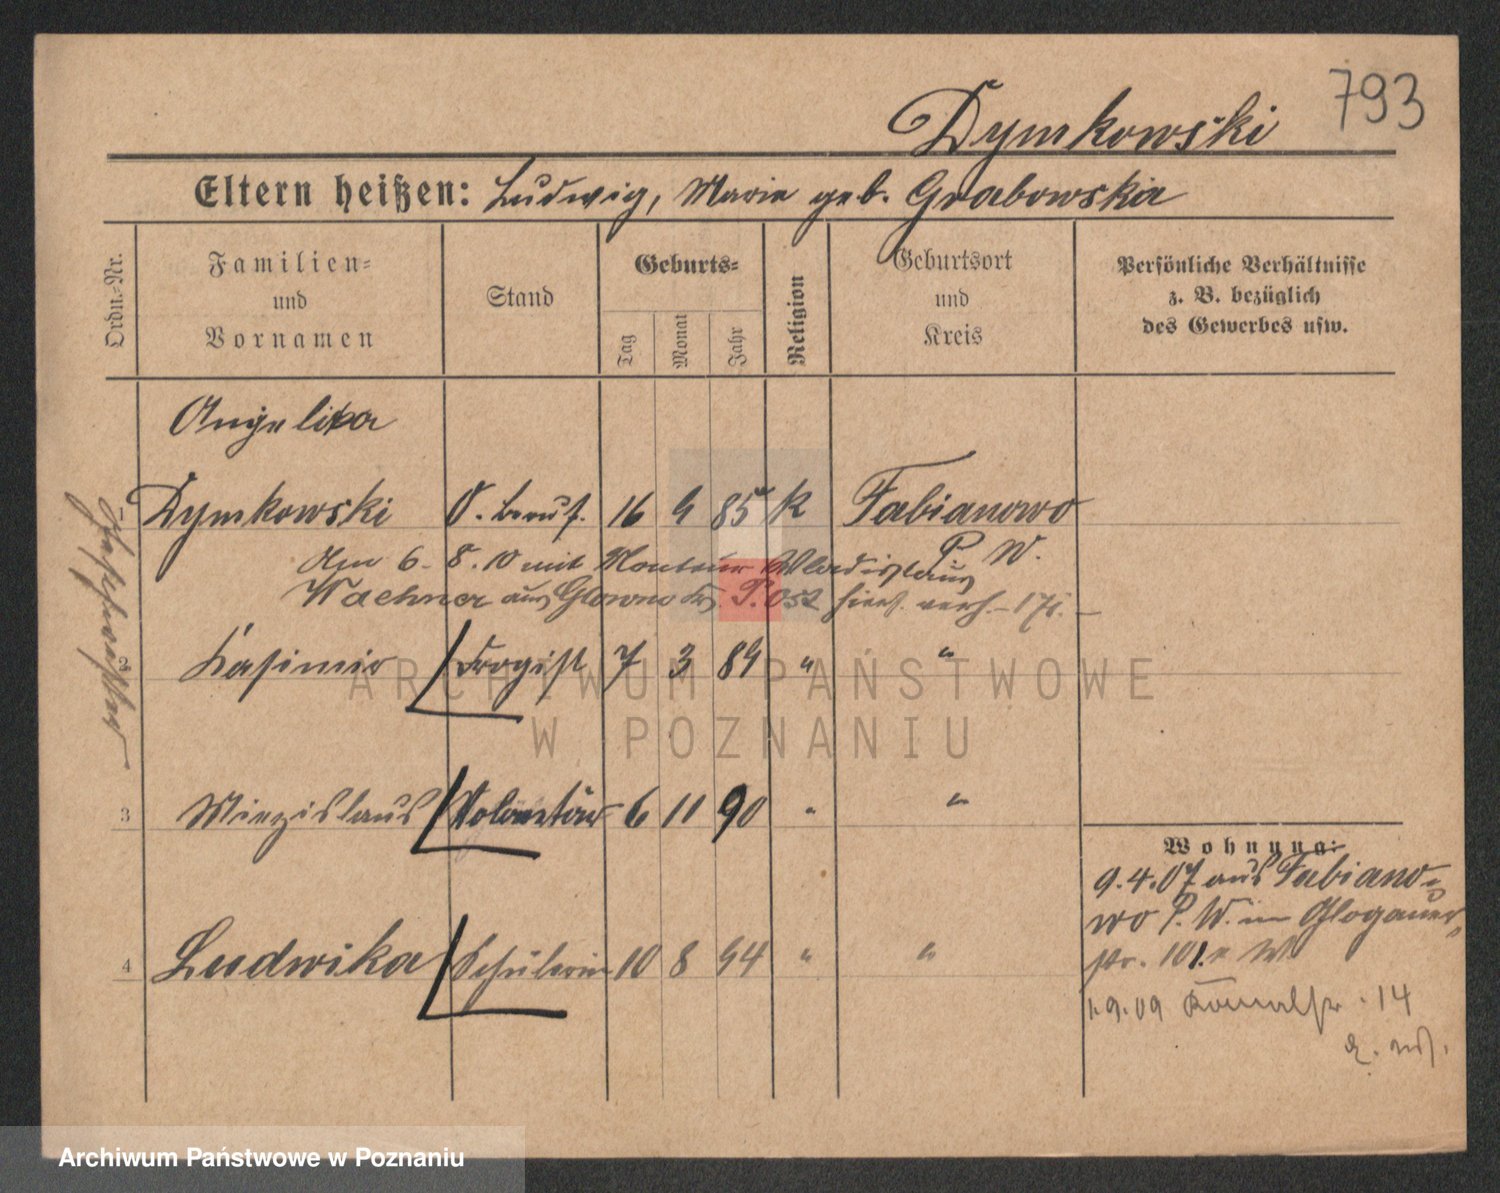 793
Dymkowski
Eltern heißen: Ludwig, Marie geb. Grabowska
Ordn.-Nr.
Familien-
und
Vornamen
Stand
Geburts-
Tag
Monat
Jahr
Religion
Geburtsort
und
Kreis
Persönliche Verhältnisse
z. B. bezüglich
des Gewerbes usw.
Angelika
Dymkowski O. Beruf. 16 9 85 K Fabianowo
P. W.
Am 6. 8. 10 mit Monteur Wladislaus
Wachner aus Glowno P. O. verh.
2 Kasimir Drogist 7 3 89 " "
3 Miezislaus Volontär 6 11 90 " "
4 Ludwika Schülerin 10 8 94 " "
Wohnung:
9.4.07 aus Fabiano-
wo P. W. in Glogauer
str. 101.
1.9.09 14
ARCHIWUM PAŃSTWOWE
W POZNANIU
Archiwum Państwowe w Poznaniu